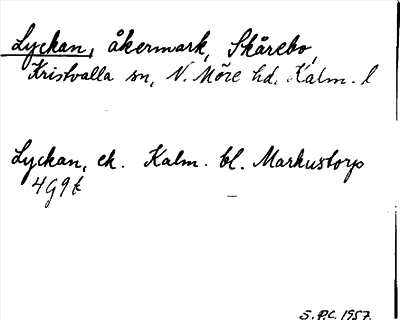 Lyckan, åkermark, Skårebo,
Kristvalla sn, N. Möre hd. Kalm. l
Lyckan, ek. Kalm. bl. Markustorp
4G9t
S.P.C. 1957.